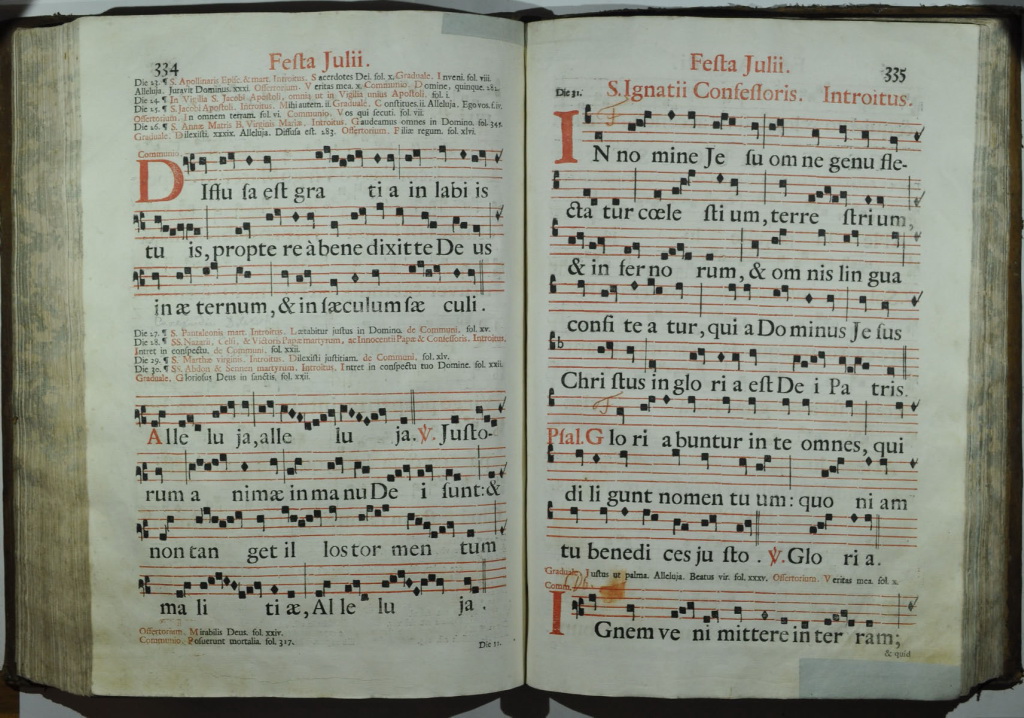 334
Festa Julii.
Die 23. ¶ S. Apollinaris Episc. & mart. Introitus. Sacerdotes Dei. fol. x. Graduale. Inveni. fol. viii
Alleluja. Juravit Dominus. xxxi. Offertorium. Veritas mea. x. Communio. Domine, quinque. 282.
Die 24. ¶ In Vigilia S. Jacobi Apostoli, omnia ut in Vigilia unius Apostoli. fol. i.
Die 25. ¶ S. Jacobi Apostoli. Introitus. Mihi autem. ii. Graduale. Constitues. ii. Alleluja. Ego vos. f. iv.
Offertorium. In omnem terram. fol. vi. Communio. Vos qui secuti. fol. vii.
Die 26. ¶ S. Annæ Matris B. Virginis Mariæ. Introitus. Gaudeamus omnes in Domino. fol. 348.
Graduale. Dilexisti. xxxix. Alleluja. Diffusa est. 283. Offertorium. Filiæ regum. fol. xlvi.
Communio.
DIffu sa est gra ti a in labi is
tu is, propte re à bene dixit te De us
in æ ternum, & in sæculum sæ culi.
Die 27. ¶ S. Pantaleonis mart. Introitus. Lætabitur justus in Domino. de Communi. fol. xv.
Die 28. ¶ SS. Nazarii, Celsi, & Victoris Papæ martyrum, ac Innocentii Papæ & Confessoris. Introitus.
Intret in conspectu. de Communi. fol. xxii.
Die 29. ¶ S. Marthæ virginis. Introitus. Dilexisti justitiam. de Communi. fol. xlv.
Die 30. ¶ SS. Abdon & Sennen martyrum. Introitus. Intret in conspectu tuo Domine. fol. xxii.
Graduale. Gloriosus Deus in sanctis. fol. xxii.
Alle lu ja, alle lu ja. ℣. Justo-
rum a nimæ in ma nu De i sunt: &
non tan get il los tor men tum
ma li ti æ, Al le lu ja.
Offertorium. Mirabilis Deus. fol. xxiv.
Communio. Posuerunt mortalia. fol. 317.
Die 31.
Festa Julii.
335
Die 31.
S. Ignatii Confessoris. Introitus.
IN no mine Je su om ne genu fle-
cta tur cœle sti um, terre stri um,
& in fer no rum, & om nis lin gua
confi te a tur, qui a Do minus Je sus
Chri stus in glo ri a est De i Pa tris.
Psal. Glo ri abuntur in te omnes, qui
di li gunt nomen tu um: quo ni am
tu benedi ces ju sto. ℣. Glo ri a.
Graduale. Justus ut palma. Alleluja. Beatus vir. fol. xxxv. Offertorium. Veritas mea. fol. x.
Comm.
IGnem ve ni mittere in ter ram;
& quid